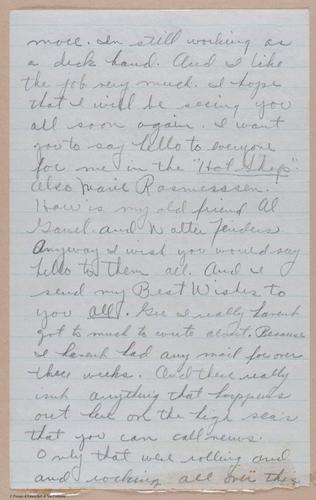 more. Im still working as
a deck hand. And I like
the job very much. I hope
that I will be seeing you
all soon again. I want
you to say hello to everyone
for me in the "Hot Shop".
also Marie Rasmesssen.
How is my old friend Al
and Walter
Anyway I wish you would say
hello to them all. And I
send my Best Wishes to
you all. Gee I really havent
got to much to write about. Because
I havent had any mail for over
three weeks. And there really
isnt anything that happens
out here on the high sea's
that you can call news.
Only that were rolling and
and rocking all over this